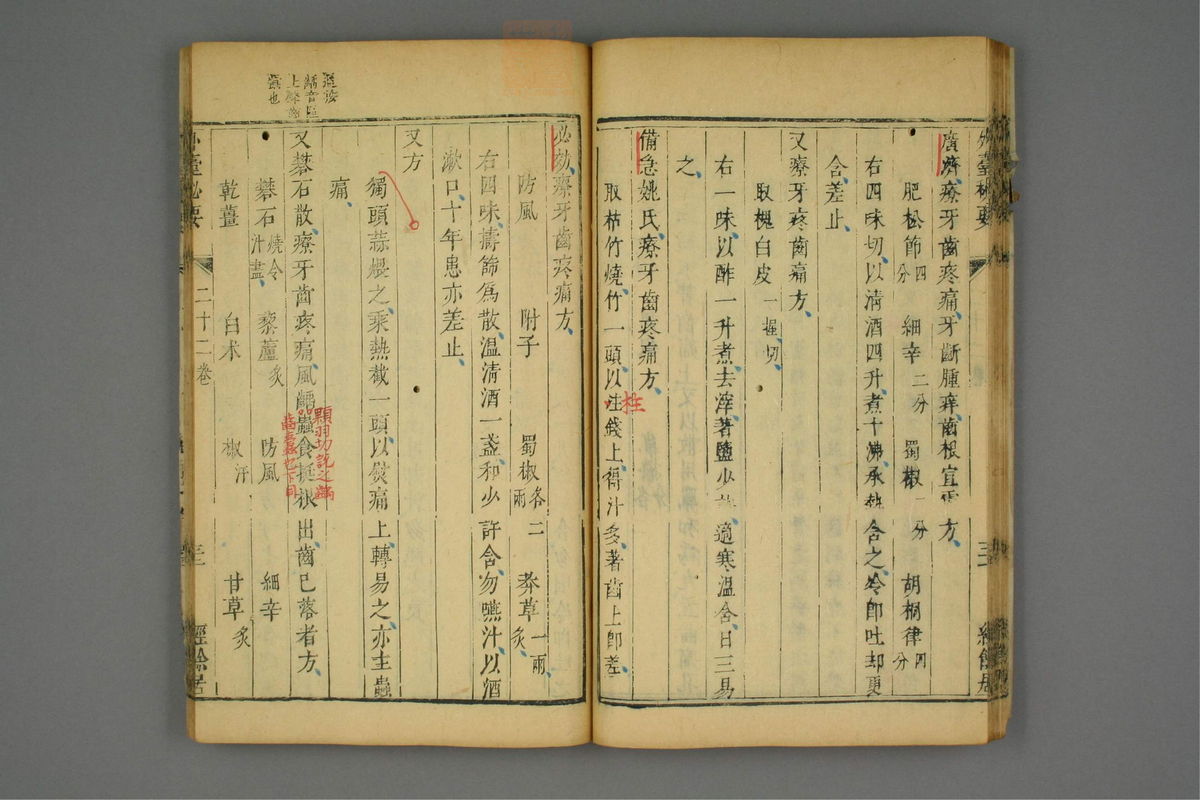 廣濟療牙齒疼痛牙齗腫痒齒根宣露方
肥松節四分 細辛二分 蜀椒一分 胡桐律四分
右四味切以清酒四升煮十沸承熱含之冷即吐却更
含差止
又療牙疼齒痛方
取槐白皮一握切
右一味以酢一升煮去滓著鹽少許適寒溫含日三易
之
備急姚氏療牙齒疼痛方
取枯竹燒竹一頭以注錢上得汁多著齒上即差
拄
必効療牙齒疼痛方
防風 附子 蜀椒各二兩 莽草一兩炙
右四味擣篩為散溫清酒一盞和少許含勿嚥汁以酒
漱口十年患亦差止
又方
獨頭蒜煨之乘熱截一頭以熨痛上轉易之亦主蟲
痛
又礬石散療牙齒疼痛風齲蟲食挺根出齒已落者方
礬石燒令汁盡 藜蘆炙 防風 細辛
乾薑 白朮 椒汗 甘草炙
二十二卷
三十
經餘居